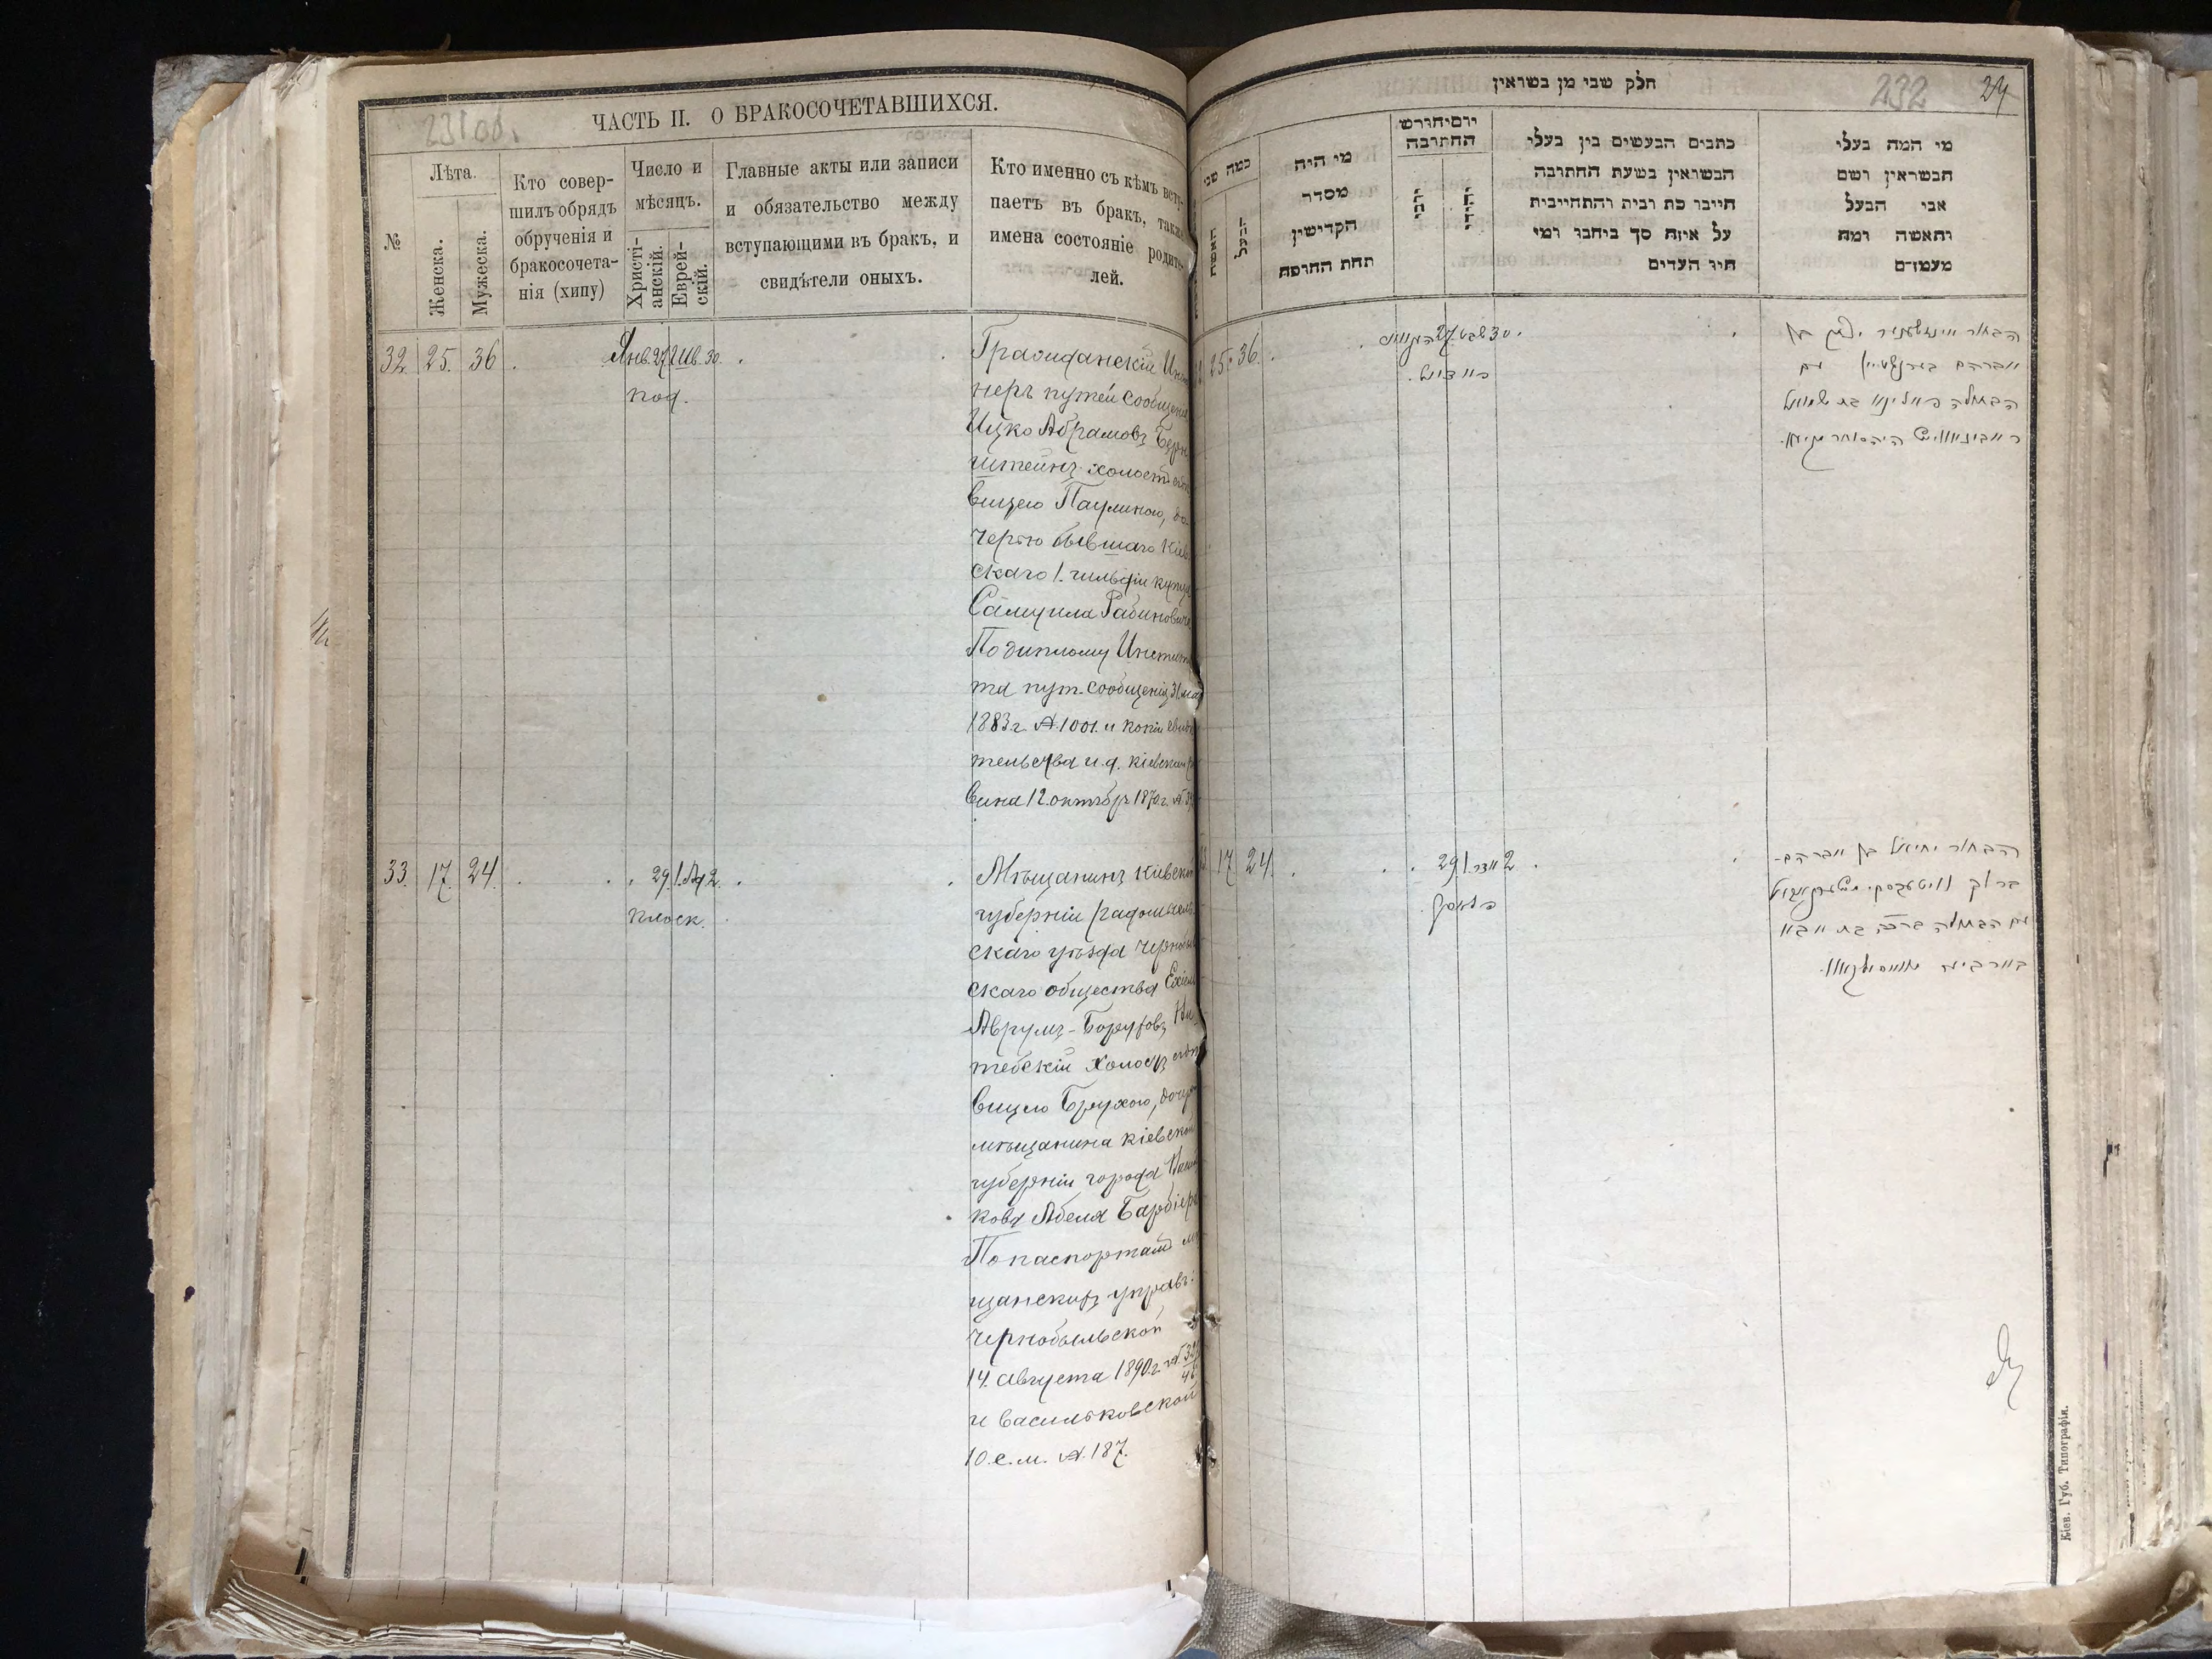 231 об.
ЧАСТЬ II. О БРАКОСОЧЕТАВШИХСЯ.
№
Лѣта.
Женска.
Мужеска.
Кто совер-
шилъ обрядъ
обрученія и
бракосочета-
нія (хипу)
Число и
мѣсяцъ.
Христі-
анскій.
Еврей-
скій.
Главные акты или записи
и обязательство между
вступающими въ бракъ, и
свидѣтели оныхъ.
Кто именно съ кѣмъ всту-
паетъ въ бракъ, также
имена состояніе родите-
лей.
32. 25. 36. Янв. 27 Шв. 30.
под.
Гражданскій Инже
неръ путей сообщенія
Ицко Абрамовъ Берн
штейнъ холост съ дѣ
вицею Паулиною, до-
черью бывшаго Кіев
скаго 1. гильдіи купца
Самуила Рабиновича
По диплому Институ
та пут. сообщенія 31 мая
1883 г. №. 1001. и копіи свидѣ
тельства и. д. кіевскаго
вина 12. октябр 1870 г. №.
33. 17. 24. 29. 1. Ад 2.
плоск.
Мѣщанинъ Кіевской
губерніи радомысль
скаго уѣзда Чернобыль
скаго общества Ехіель
Аврумъ-Боруховъ Ви
тебскій холост съ дѣ
вицею Брухою, дочерью
мѣщанина кіевской
губерніи города Василь
кова Абеля Барбіера
По паспортамъ мѣ
щанскихъ управъ:
Чернобыльской
14. августа 1890 г. №.
и Васильковской
10. с. м. №. 187.
חלק שני מן נשואין
232 24
האשה
הבעל
כמה שני
מי היה
מסדר
הקדושין
תחת החופה
יום וחודש
החתונה
כתבים הנעשים בין בעלי
הנשואין בשעת החתונה
על איזה סך ניתנו ומי
היו העדים
מי המה בעלי
הנשואין ושם
אבי הבעל
והאשה ומה
מעמדם
25. 36. 27 שבט 30.
הבחור אינזשעניר יצחק בן
אברהם בערנשטיין עם
הבתולה פאולינא בת שמואל
ראבינאוויטש
17 24. 29 1. אדר 2
הבחור יחיאל בן אברהם-
ברוך וויטעבסקי
עם הבתולה ברכה בת אבא
בארביער
Кіев. Губ. Типографія.